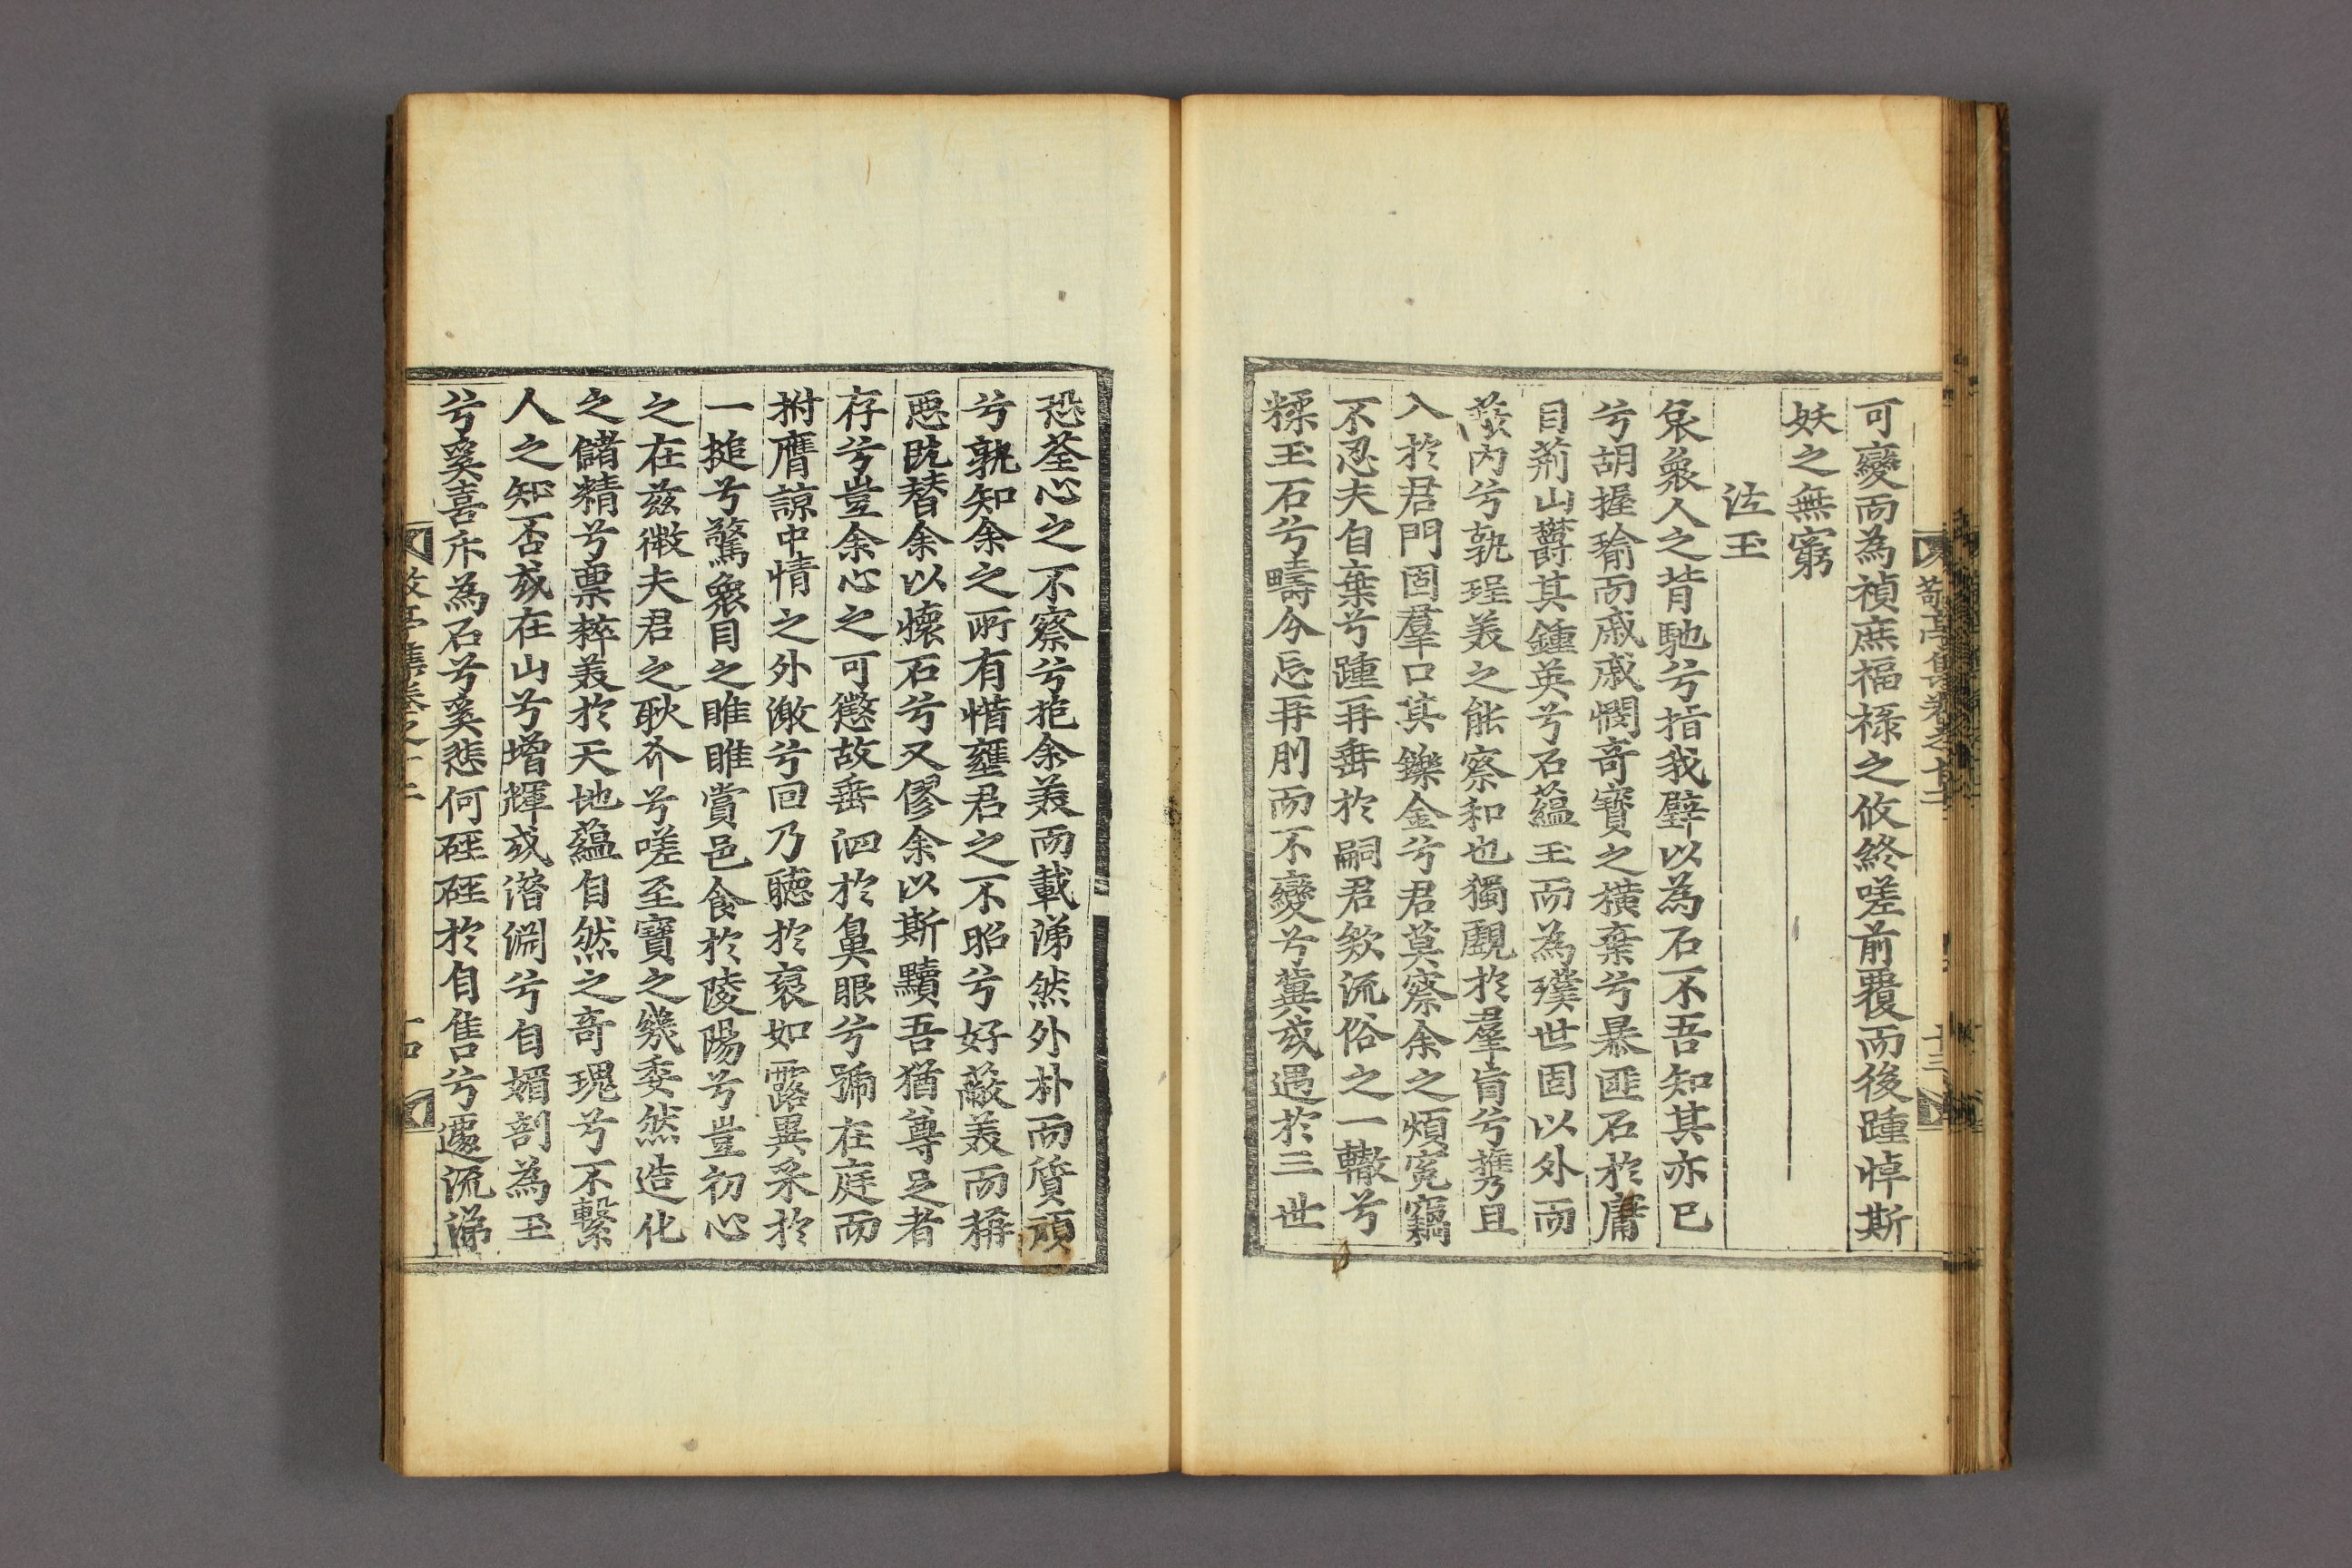 敬亭集卷之十二
十三
可變而為禎庶福祿之攸終嗟前覆而後踵悼斯
妖之無窮
泣玉
哀衆人之背馳兮指我璧以為石不吾知其亦已
兮胡握瑜而戚戚憫奇寶之橫棄兮暴匪石於庸
目荊山欝其鍾英兮石蘊玉而為璞世固以外而
蔽內兮孰珵美之能察和也獨覰於羣肓兮携且
入於君門固羣口其鑠金兮君莫察余之煩寃竊
不忍夫自棄兮踵再垂於嗣君欸流俗之一轍兮
糅玉石兮疇分忘再刖而不變兮冀或遇於三世
恐荃心之不察兮抱余羙而載涕然外朴而質頑
兮孰知余之所有惜壅君之不昭兮好蔽羙而稱
惡旣替余以懷石兮又僇余以斯黷吾猶尊足者
存兮豈余心之可懲故垂泗於鼻眼兮號在庭而
拊膺諒中情之外激兮回乃聽於衮如露異采於
一搥兮驚衆目之睢睢賞邑食於陵陽兮豈初心
之在玆微夫君之耿介兮嗟至寶之幾委然造化
之儲精兮禀粹羙於天地蘊自然之奇瑰兮不繫
人之知否或在山兮增輝或潛淵兮自媚剖為玉
兮奚喜斥為石兮奚悲何硜硜於自售兮遽流涕
敬亭集卷之十二
十四